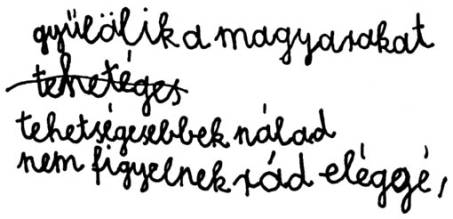 gyűlölik a magyarokat
tehetéges
tehetségesebbek nálad
nem figyelnek rád eléggé,